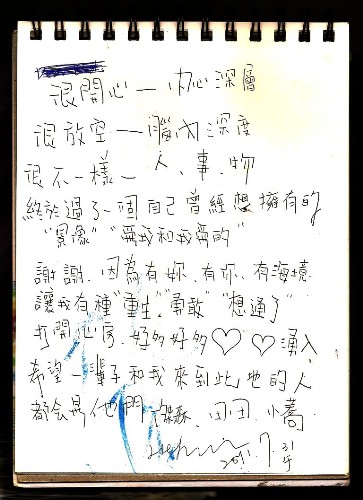 很開心一內心深層
很放空一腦內深度
很不一樣一人、事、物
終於過了一個自己曾經想擁有的
"影像" "愛我和我愛的"
謝謝、因為有妳、有你、有海境
讓我有種"重生、勇敢" "想通了"
打開心房、好多好多♡♡湧入
希望一輩子和我來到此地的人
都会是他們 田田、小喬
2011.7.31